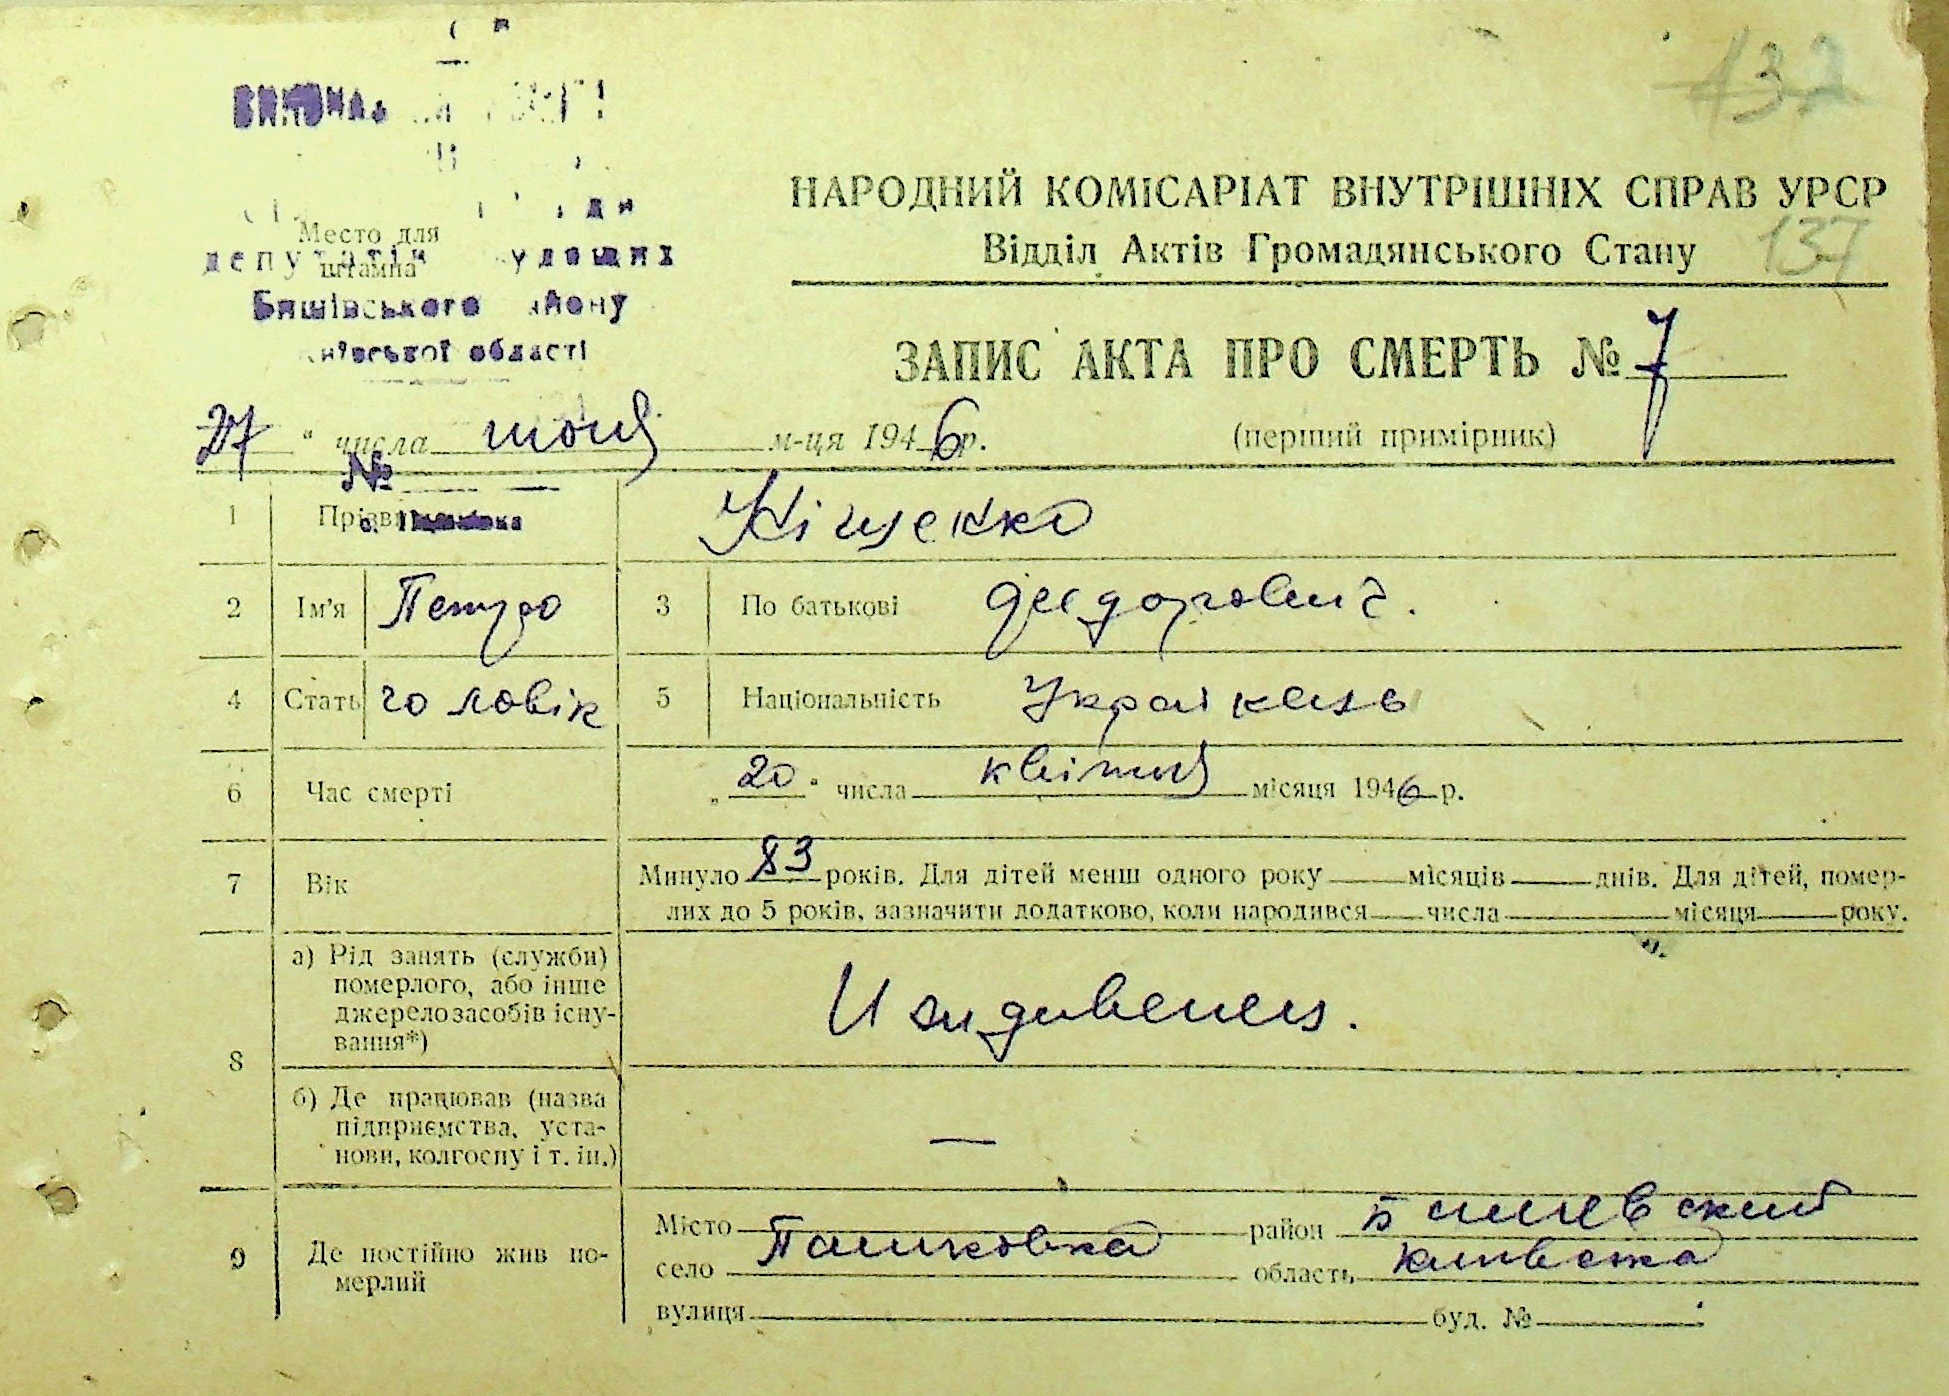 132
НАРОДНИЙ КОМІСАРІАТ ВНУТРІШНІХ СПРАВ УРСР
Відділ Актів Громадянського Стану
137
Место для
штампа
депутатів
Бишівського району
Київської області
ЗАПИС АКТА ПРО СМЕРТЬ № 7
27 " числа июня м-ця 1946 р.
(перший примірник)
№
1 Кіщенко
2 Ім'я Петро 3 По батькові Федорович.
4 Стать чоловік 5 Національність Українець
6 Час смерті „ 20 " числа квітня місяця 1946 р.
7 Вік Минуло 83 років. Для дітей менш одного року місяців днів. Для дітей, помер-
лих до 5 років, зазначити додатково, коли народився числа місяця року.
8 а) Рід занять (служби)
померлого, або інше
джерело засобів існу-
вання*)
Иждивенец.
б) Де працював (назва
підприємства, уста-
нови, колгоспу і т. ін.)
—
9 Де постійно жив по-
мерлий
Місто район Бишевский
село Пашковка область Киивска
вулиця буд. №